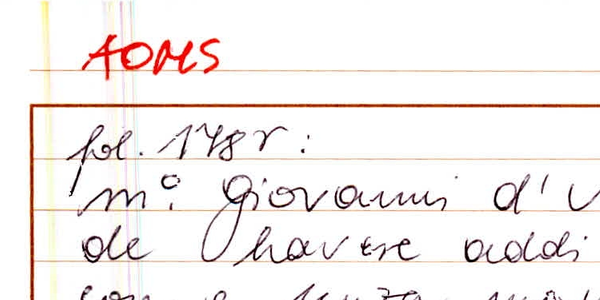 AOMS
fol. 178r:
m.º Giovanni d'
de havere addi